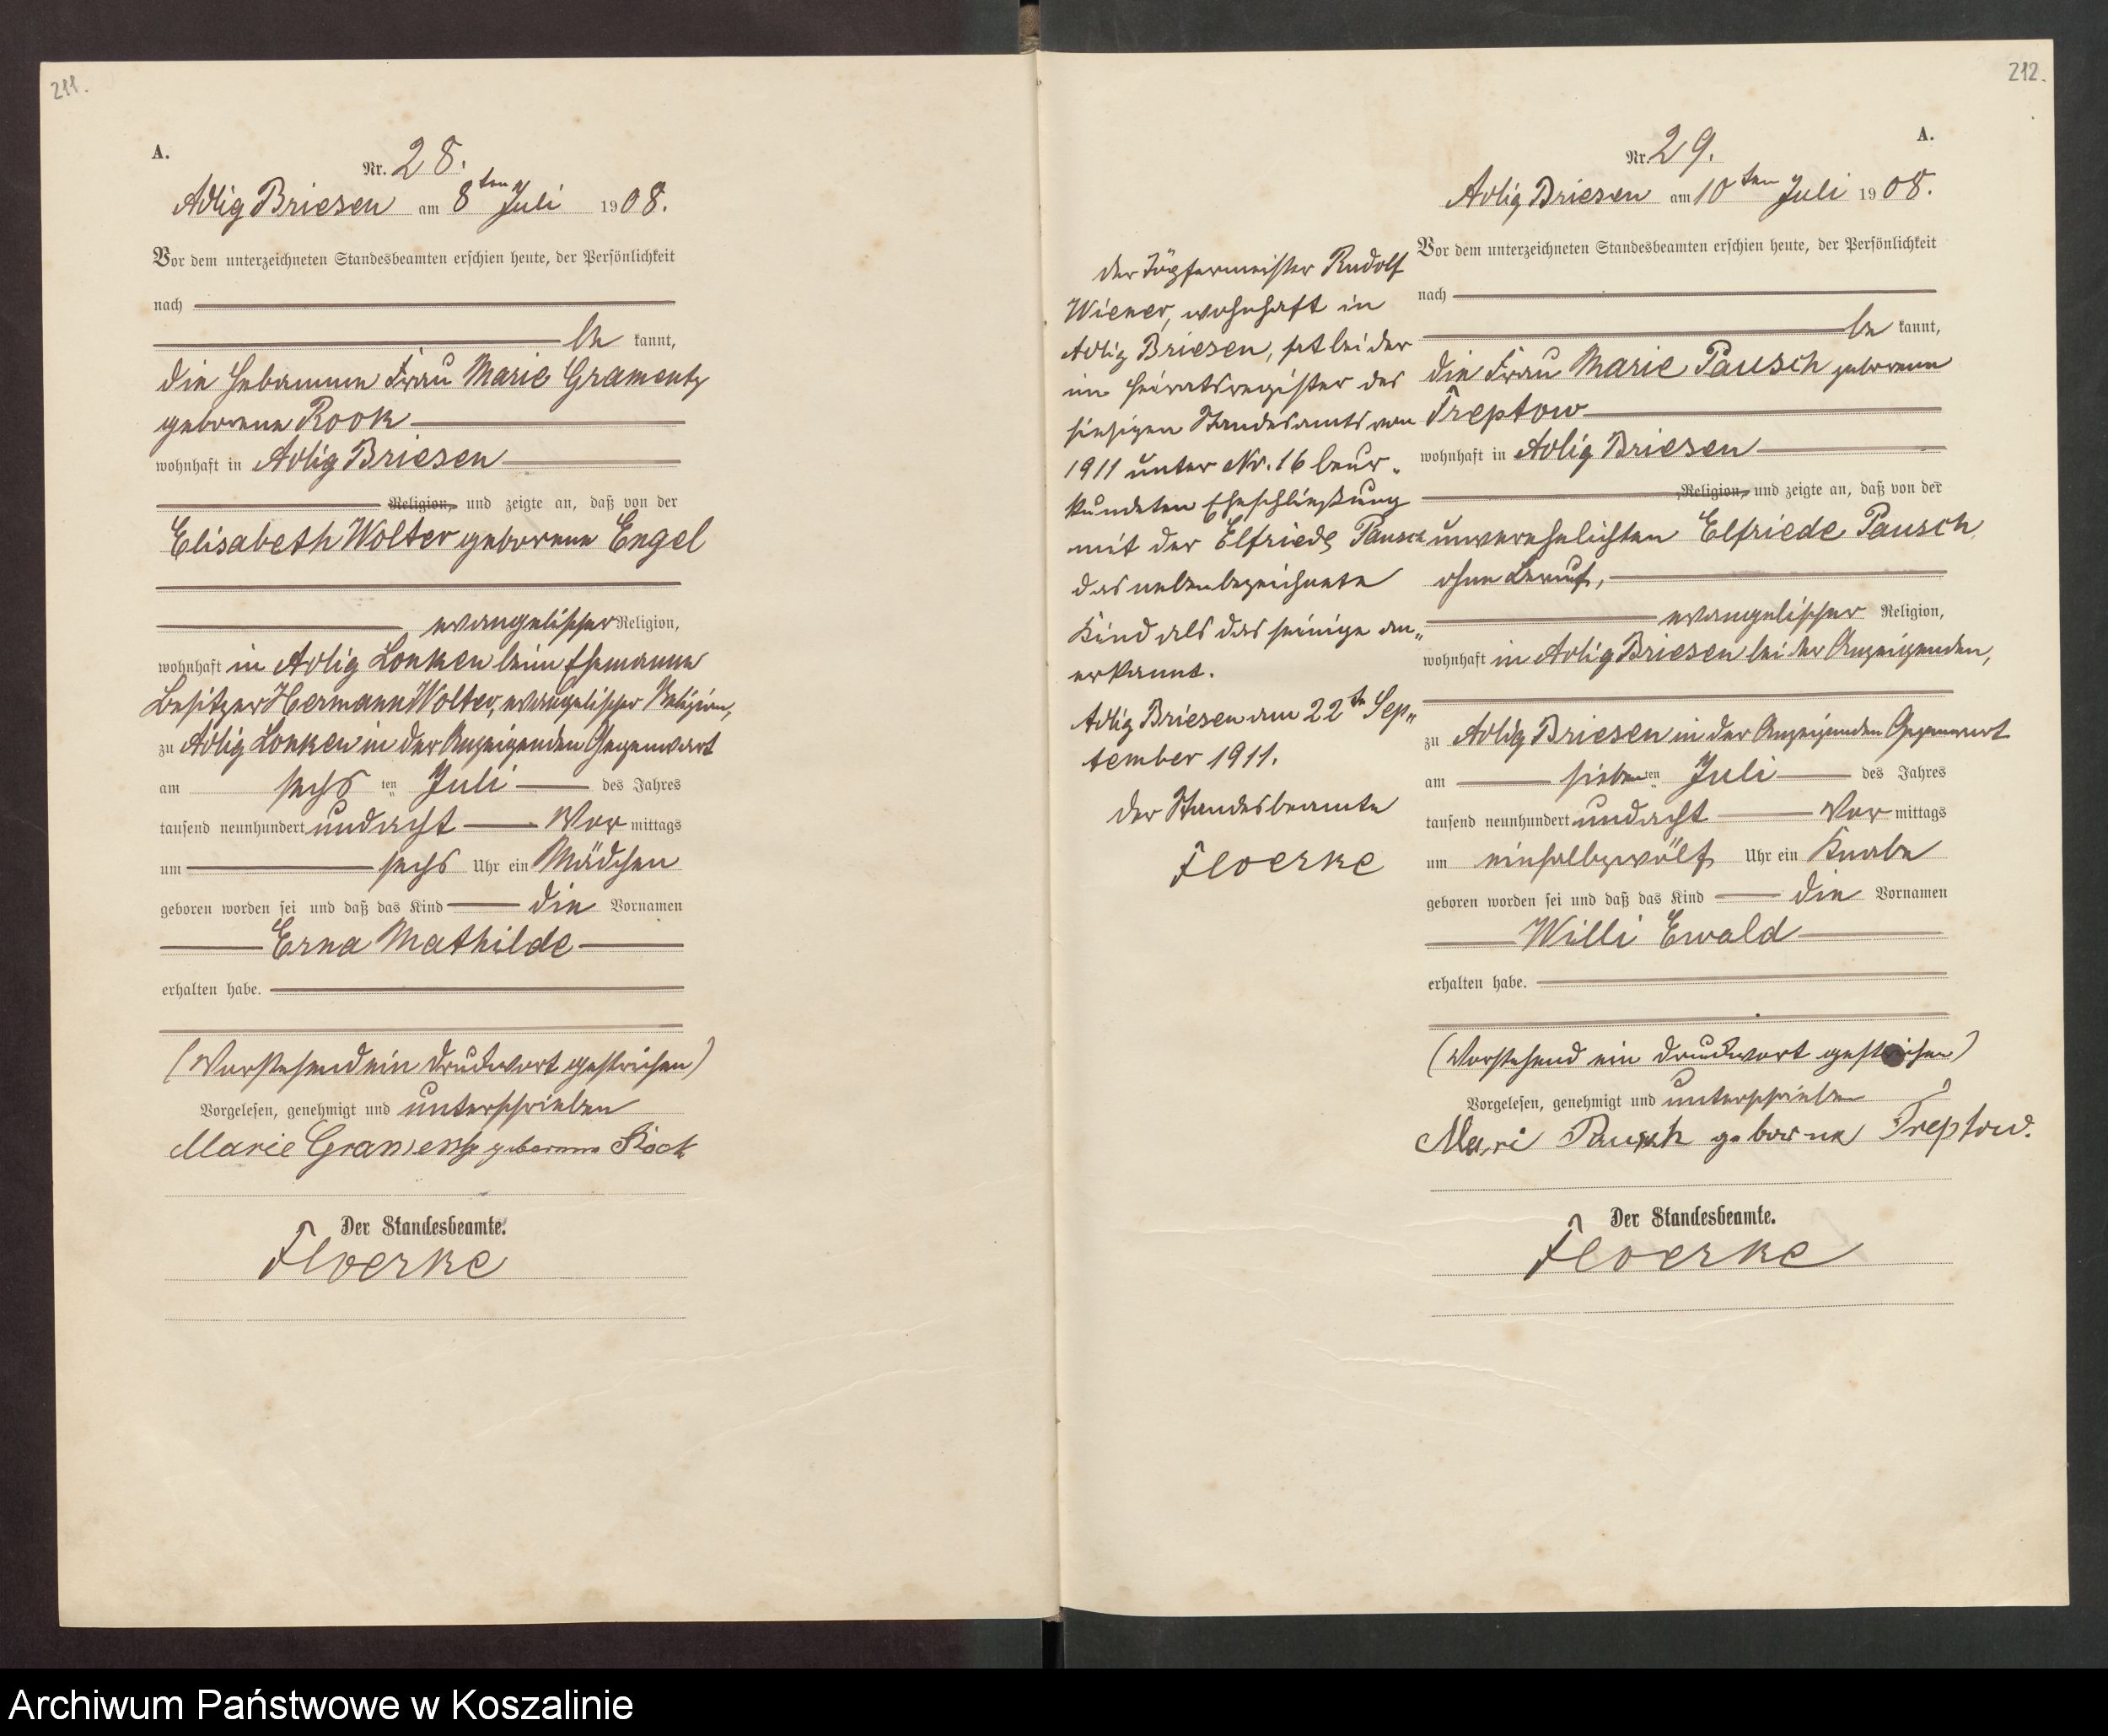 211.
A.
Nr. 28.
Adlig Briesen am 8ten Juli 1908.
Vor dem unterzeichneten Standesbeamten erschien heute, der Persönlichkeit
nach
be kannt,
die Hebamme Frau Marie Gramentz
geborene Rook
wohnhaft in Adlig Briesen
Religion, und zeigte an, daß von der
Elisabeth Wolter geborene Engel
evangelischer Religion,
wohnhaft in Adlig Lonken beim Ehemanne
Besitzer Hermann Wolter, evangelischer Religion,
zu Adlig Lonken in der Anzeigenden Gegenwart
am sechsten Juli des Jahres
tausend neunhundert undacht Vor mittags
um sechs Uhr ein Mädchen
geboren worden sei und daß das Kind die Vornamen
Erna Mathilde
erhalten habe.
(Vorstehend ein Druckwort gestrichen)
Vorgelesen, genehmigt und unterschrieben
Marie Gramentz geborene Rook
Der Standesbeamte.
Floerke
212.
A.
Nr. 29.
Adlig Briesen am 10ten Juli 1908.
Vor dem unterzeichneten Standesbeamten erschien heute, der Persönlichkeit
nach
be kannt,
die Frau Marie Pausch geborene
Treptow
wohnhaft in Adlig Briesen
Religion, und zeigte an, daß von der
unverehelichten Elfriede Pausch,
ohne Beruf,
evangelischer Religion,
wohnhaft in Adlig Briesen bei der Anzeigenden,
zu Adlig Briesen in der Anzeigenden Gegenwart
am siebenten Juli des Jahres
tausend neunhundert undacht Vor mittags
um einhalbzwölf Uhr ein Knabe
geboren worden sei und daß das Kind die Vornamen
Willi Ewald
erhalten habe.
(Vorstehend ein Druckwort gestrichen)
Vorgelesen, genehmigt und unterschrieben
Mari Pausch geborne Treptow.
Der Standesbeamte.
Floerke
Der Töpfermeister Rudolf
Wiener, wohnhaft in
Adlig Briesen, hat bei der
im Heiratsregister des
hiesigen Standesamts von
1911 unter No. 16 beur-
kundeten Eheschließung
mit der Elfriede Pausch
das nebenbezeichnete
Kind als das seinige an-
erkannt.
Adlig Briesen am 22ten Sep-
tember 1911.
Der Standesbeamte
Floerke
Archiwum Państwowe w Koszalinie